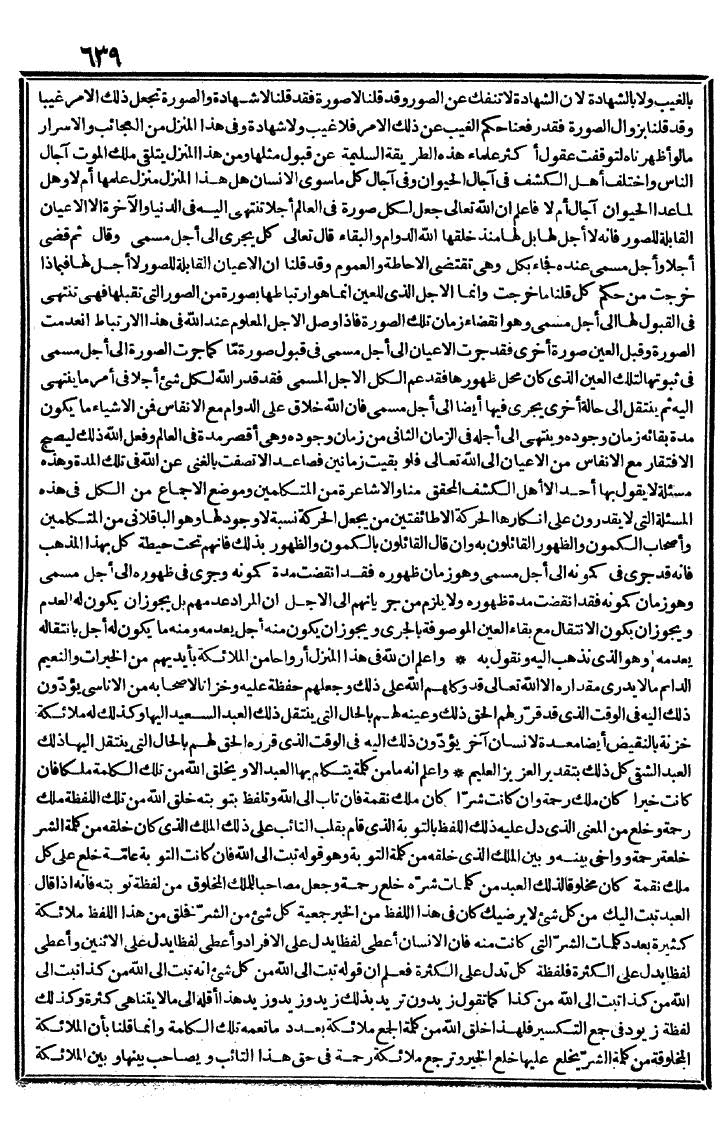 ٦٣٩
بالغيب ولا بالشهادة لان الشهادة لا تنفك عن الصور وقد قلنا لا صورة فقد قلنا لا شهادة والصورة تجعل ذلك الامر غيبا
وقد قلنا بزوال الصورة فقد رفعنا حكم الغيب عن ذلك الامر فلا غيب ولا شهادة وفى هذا المنزل من العجائب والاسرار
مالو أظهرناه لتوقفت عقول أكثر علماء هذه الطريقة السليمة عن قبول مثلها ومن هذا المنزل يتلقى ملك الموت آجال
الناس واختلف أهل الكشف فى آجال الحيوان وفى آجال كل ما سوى الانسان هل هذا المنزل منزل علمها أم لا وهل
لما عدا الحيوان آجال أم لا فاعلم ان الله تعالى جعل لكل صورة فى العالم أجلا تنتهى اليه فى الدنيا والآخرة الا الاعيان
القابلة للصور فانه لا أجل لها بل لها منذ خلقها الله الدوام والبقاء قال تعالى كل يجرى الى أجل مسمى وقال ثم قضى
أجلا وأجل مسمى عنده فجاء بكل وهى تقتضى الاحاطة والعموم وقد قلنا ان الاعيان القابلة للصور لا أجل لها فبماذا
خرجت من حكم كل قلنا ما خرجت وانما الاجل الذى للعين انما هو ارتباطها بصورة من الصور التى تقبلها فهى تنتهى
فى القبول لها الى أجل مسمى وهو انقضاء زمان تلك الصورة فاذا وصل الاجل المعلوم عند الله فى هذا الارتباط انعدمت
الصورة وقبل العين صورة أخرى فقد جرت الاعيان الى أجل مسمى فى قبول صورة مّا كما جرت الصورة الى أجل مسمى
فى ثبوتها لتلك العين الذى كان محل ظهورها فقد عم الكل الاجل المسمى فقد قدر الله لكل شئ أجلا فى أمر ما ينتهى
اليه ثم ينتقل الى حالة أخرى يجرى فيها أيضا الى أجل مسمى فان الله خلاق على الدوام مع الانفاس فمن الاشياء ما يكون
مدة بقائه زمان وجوده وينتهى الى أجله فى الزمان الثانى من زمان وجوده وهى أقصر مدة فى العالم وفعل الله ذلك ليصح
الافتقار مع الانفاس من الاعيان الى الله تعالى فلو بقيت زمانين فصاعدا لاتصفت بالغنى عن الله فى تلك المدة وهذه
مسئلة لا يقول بها أحد الا أهل الكشف المحقق منا والاشاعرة من المتكلمين وموضع الاجماع من الكل فى هذه
المسئلة التى لا يقدرون على انكارها الحركة الا طائفتين من يجعل الحركة نسبة لا وجود لها وهو الباقلانى من المتكلمين
وأصحاب الكمون والظهور القائلون به وان قال القائلون بالكمون والظهور بذلك فانهم تحت حيطة كل بهذا المذهب
فانه قد جرى فى كمونه الى أجل مسمى وهو زمان ظهوره فقد انقضت مدة كمونه وجرى فى ظهوره الى أجل مسمى
وهو زمان كمونه فقد انقضت مدة ظهوره ولا يلزم من جريانهم الى الاجل ان المراد عدمهم بل يجوز ان يكون له العدم
ويجوز ان يكون الانتقال مع بقاء العين الموصوفة بالجرى ويجوز ان يكون منه أجل يعدمه ومنه ما يكون له أجل بانتقاله
يعدمه وهو الذى نذهب اليه ونقول به * واعلم ان لله فى هذا المنزل أرواحا من الملائكة بأيديهم من الخيرات والنعيم
الدايم ما لا يدرى مقداره الا الله تعالى قد وكلهم الله على ذلك وجعلهم حفظة عليه وخزانا لاصحابه من الاناسى يؤدّون
ذلك اليه فى الوقت الذى قد قرّر لهم الحق ذلك وعينه لهم بالحال التى ينتقل ذلك العبد السعيد اليها وكذلك له ملائكة
خزنة بالنقيض أيضا معدة لانسان آخر يؤدّون ذلك اليه فى الوقت الذى قرره الحق لهم بالحال التى ينتقل اليها ذلك
العبد الشقى كل ذلك بتقدير العزيز العليم * واعلم انه ما من كلمة يتكلم بها العبد الا ويخلق الله من تلك الكلمة ملكا فان
كانت خيرا كان ملك رحمة وان كانت شرّا كان ملك نقمة فان تاب الى الله وتلفظ بتوبته خلق الله من تلك اللفظة ملك
رحمة وخلع من المعنى الذى دل عليه ذلك اللفظ بالتوبة الذى قام بقلب التائب على ذلك الملك الذى كان خلقه من كلمة الشر
خلعة رحمة وواخى بينه وبين الملك الذى خلقه من كلمة التوبة وهو قوله تبت الى الله فان كانت التوبة عامّة خلع على كل
ملك نقمة كان مخلوقا لذلك العبد من كلمات شرّه خلع رحمة وجعل مصاحبا للملك المخلوق من لفظة توبته فانه اذا قال
العبد تبت اليك من كل شئ لا يرضيك كان فى هذا اللفظ من الخير جمعية كل شئ من الشرّ فخلق من هذا اللفظ ملائكة
كثيرة بعدد كلمات الشرّ التى كانت منه فان الانسان أعطى لفظا يدل على الافراد وأعطى لفظا يدل على الاثنين وأعطى
لفظا يدل على الكثرة فلفظة كل تدل على الكثرة فعلم ان قوله تبت الى الله من كل شئ انه تبت الى الله من كذا تبت الى
الله من كذا تبت الى الله من كذا كما تقول زيدون تريد بذلك زيد وزيد وزيد هذا أقله الى ما لا يتناهى كثرة وكذلك
لفظة زيود فى جمع التكسير فلهذا خلق الله من كلمة الجمع ملائكة بعدد ما تعمه تلك الكلمة وانما قلنا بأن الملائكة
المخلوقة من كلمة الشرّ يخلع عليها خلع الخير وترجع ملائكة رحمة فى حق هذا التائب ويصاحب بينها وبين الملائكة